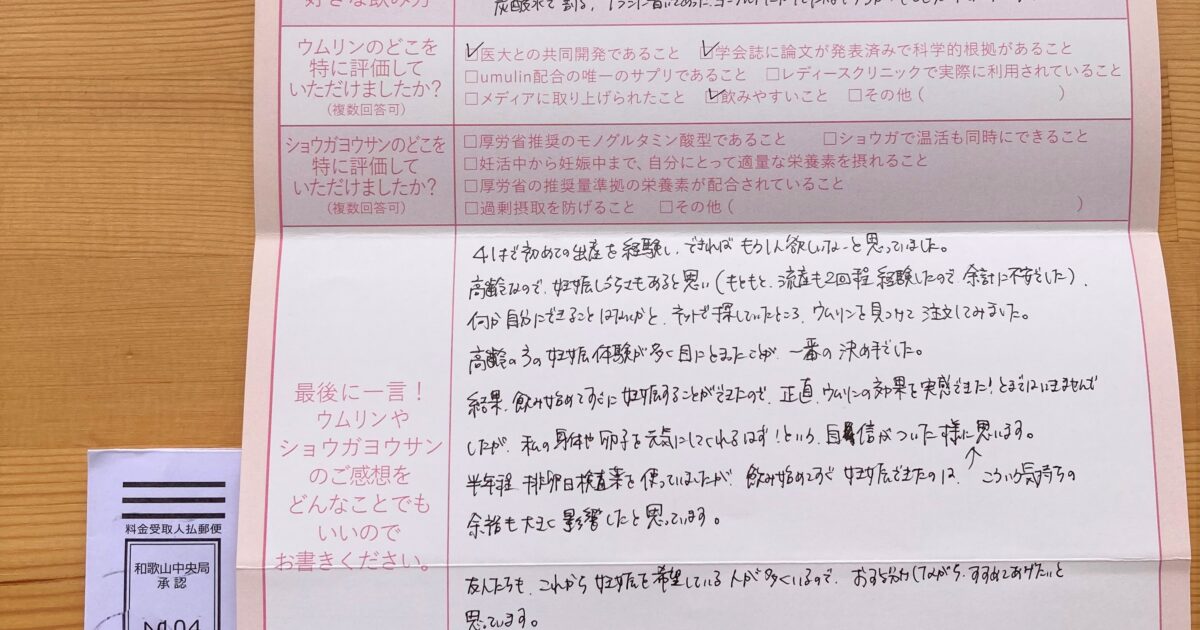 好きな飲み方
炭酸水で割る。
ウムリンのどこを
特に評価して
いただけましたか?
(複数回答可)
☑医大との共同開発であること ☑学会誌に論文が発表済みで科学的根拠があること
□umulin配合の唯一のサプリであること □レディースクリニックで実際に利用されていること
□メディアに取り上げられたこと ☑飲みやすいこと □その他( )
ショウガヨウサンのどこを
特に評価して
いただけましたか?
(複数回答可)
□厚労省推奨のモノグルタミン酸型であること □ショウガで温活も同時にできること
□妊活中から妊娠中まで、自分にとって適量な栄養素を摂れること
□厚労省の推奨量準拠の栄養素が配合されていること
□過剰摂取を防げること □その他( )
最後に一言!
ウムリンや
ショウガヨウサン
のご感想を
どんなことでも
いいので
お書きください。
41才で初めての出産を経験し、できればもう1人欲しいなーと思っていました。
高齢なので、妊娠しづらさもあると思い(もともと、流産も2回程経験したので、余計に不安でした)、
何か自分にできることはないかと、ネットで探していたところ、ウムリンを見つけて注文してみました。
高齢の方の妊娠体験が多く目にとまったことが、一番の決め手でした。
結果、飲み始めてすぐに妊娠することができたので、正直、ウムリンの効果を実感できた!とまではいえませんで
したが、私の身体や卵子を元気にしてくれるはず!という、自信がついた様に思います。
半年程排卵日検査薬を使っていましたが、飲み始めてすぐ妊娠できたのは、こういう気持ちの
余裕も大きく影響したと思っています。
友人たちも、これから妊娠を希望している人が多くいるので、おすそ分けしながら、すすめてあげたいと
思っています。
料金受取人払郵便
和歌山中央局
承認